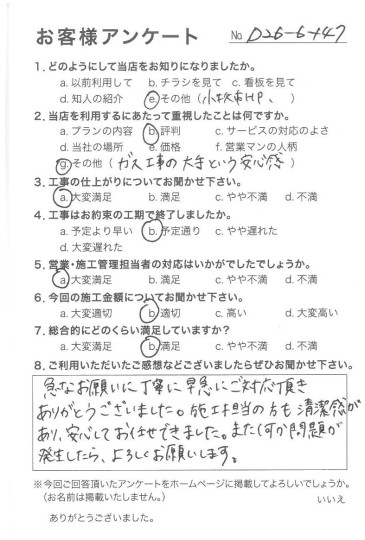 お客様アンケート No. D26-6-47
1. どのようにして当店をお知りになりましたか。
a. 以前利用して b. チラシを見て c. 看板を見て
d. 知人の紹介 e. その他（小牧市HP、）
2. 当店を利用するにあたって重視したことは何ですか。
a. プランの内容 b. 評判 c. サービスの対応のよさ
d. 当社の場所 e. 価格 f. 営業マンの人柄
g. その他（ガス工事の大手という安心感）
3. 工事の仕上がりについてお聞かせ下さい。
a. 大変満足 b. 満足 c. やや不満 d. 不満
4. 工事はお約束の工期で終了しましたか。
a. 予定より早い b. 予定通り c. やや遅れた
d. 大変遅れた
5. 営業・施工管理担当者の対応はいかがでしたでしょうか。
a. 大変満足 b. 満足 c. やや不満 d. 不満
6. 今回の施工金額についてお聞かせ下さい。
a. 大変適切 b. 適切 c. 高い d. 大変高い
7. 総合的にどのくらい満足していますか?
a. 大変満足 b. 満足 c. やや不満 d. 不満
8. ご利用いただいたご感想などございましたらぜひお聞かせ下さい。
急なお願いに丁寧に早急にご対応頂き
ありがとうございました。施工担当の方も清潔感が
あり、安心してお任せできました。また何か問題が
発生したら、よろしくお願いします。
※今回ご回答頂いたアンケートをホームページに掲載してよろしいでしょうか。
（お名前は掲載いたしません。） いいえ
ありがとうございました。